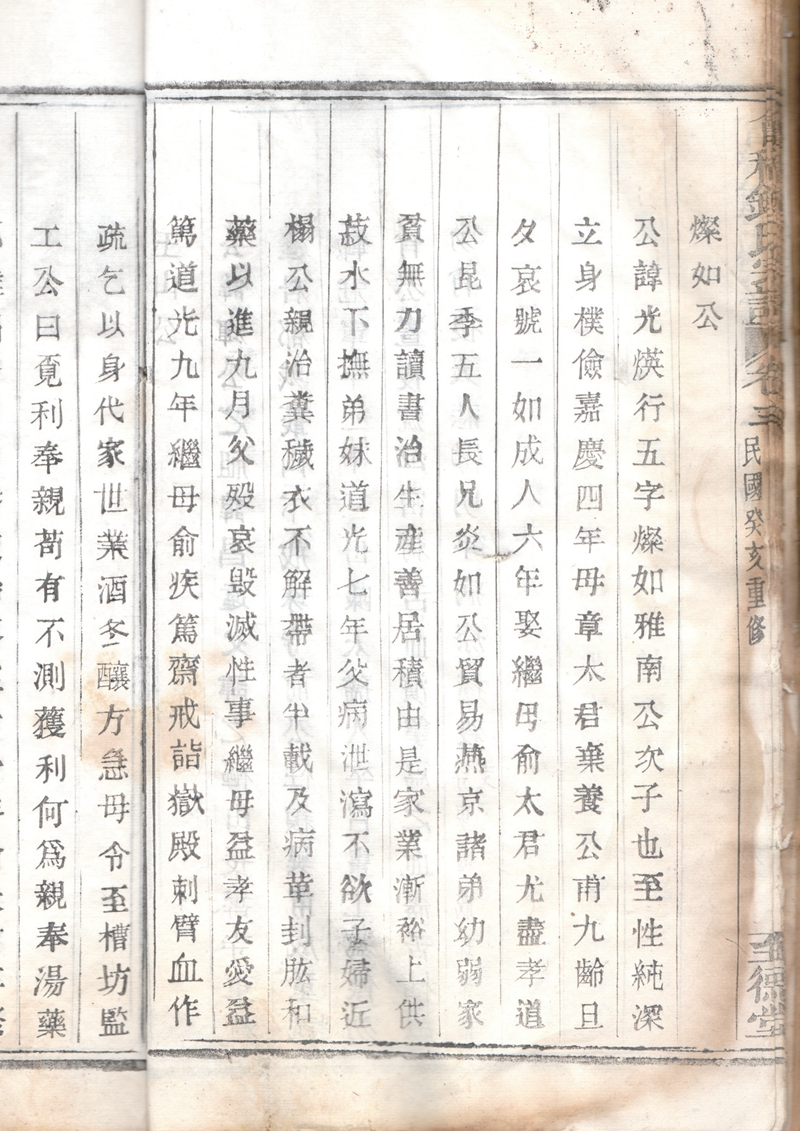 鍾氏宗譜 卷三 民國癸亥重修
燦如公
公諱光煐行五字燦如雅南公次子也至性純深
立身樸儉嘉慶四年母章太君棄養公甫九齡旦
夕哀號一如成人六年娶繼母俞太君尤盡孝道
公昆季五人長兄炎如公貿易燕京諸弟幼弱家
貧無力讀書治生產善居積由是家業漸裕上供
菽水下撫弟妹道光七年父病泄瀉不欲子婦近
榻公親治糞穢衣不解帶者半載及病革刲肱和
藥以進九月父歿哀毀滅性事繼母益孝友愛益
篤道光九年繼母俞疾篤齋戒詣嶽殿刺臂血作
疏乞以身代家世業酒冬釀方急母令至槽坊監
工公曰覔利奉親苟有不測獲利何爲親奉湯藥